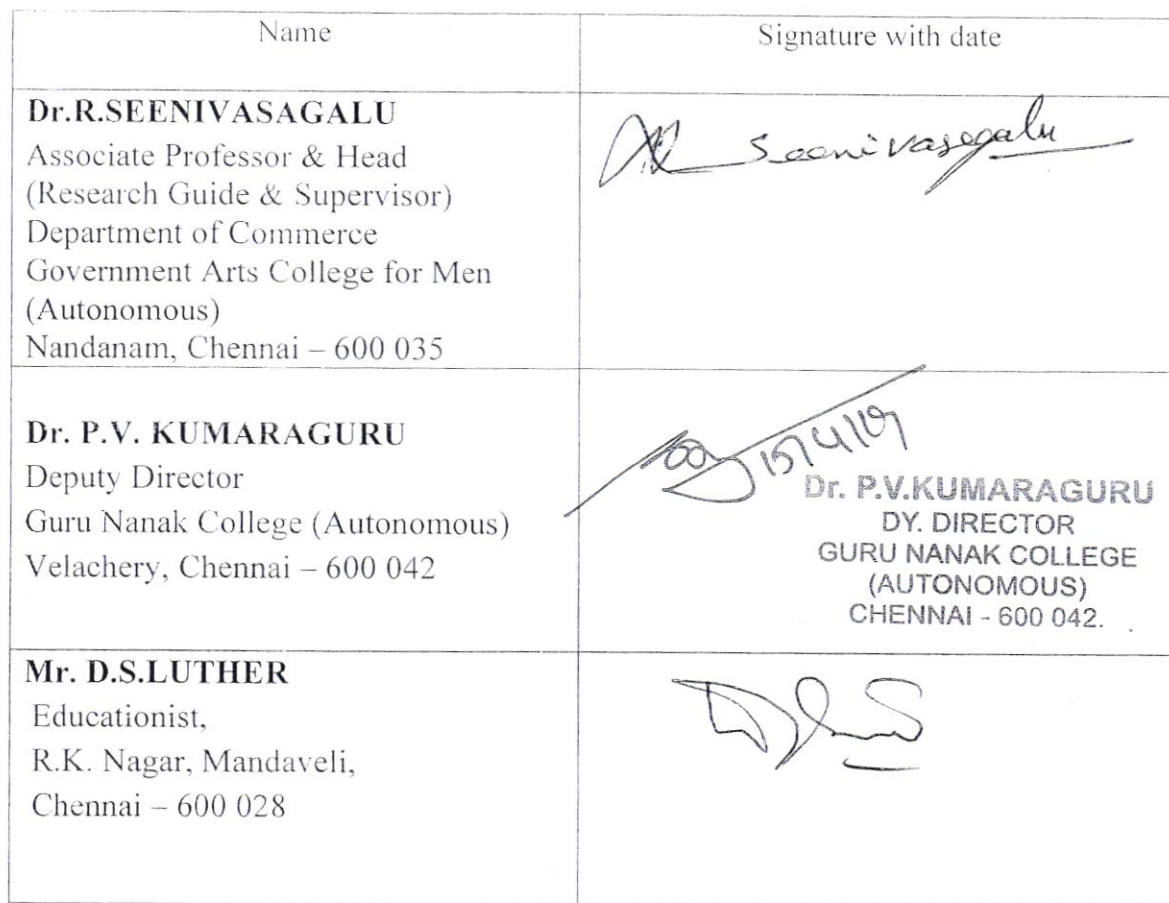 Name
Signature with date
Dr.R.SEENIVASAGALU
Associate Professor & Head
(Research Guide & Supervisor)
Department of Commerce
Government Arts College for Men
(Autonomous)
Nandanam, Chennai – 600 035
Seenivasagalu
Dr. P.V. KUMARAGURU
Deputy Director
Guru Nanak College (Autonomous)
Velachery, Chennai – 600 042
15/4/19
Dr. P.V.KUMARAGURU
DY. DIRECTOR
GURU NANAK COLLEGE
(AUTONOMOUS)
CHENNAI - 600 042.
Mr. D.S.LUTHER
Educationist,
R.K. Nagar, Mandaveli,
Chennai – 600 028